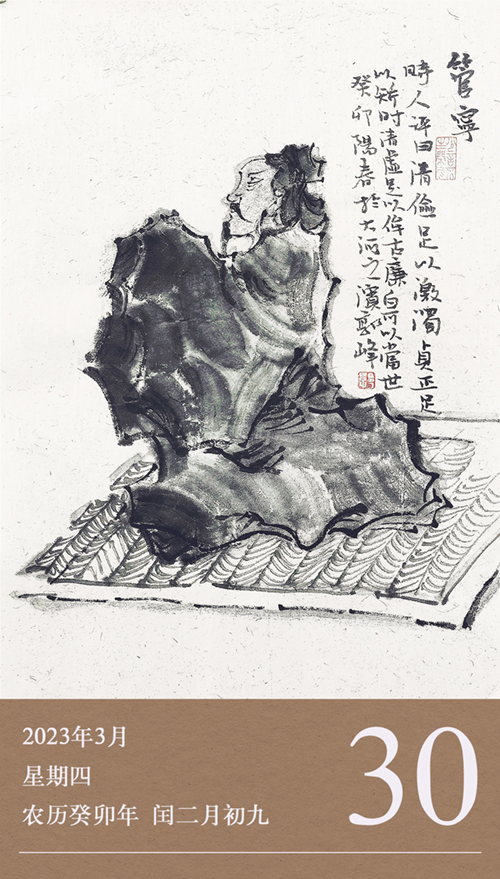 管寧
時人评曰清儉足以激濁貞正足
以矫时清虚足以侔古廉白可以當世
癸卯陽春於大河之濱 峰
2023年3月
星期四
农历癸卯年 闰二月初九
30